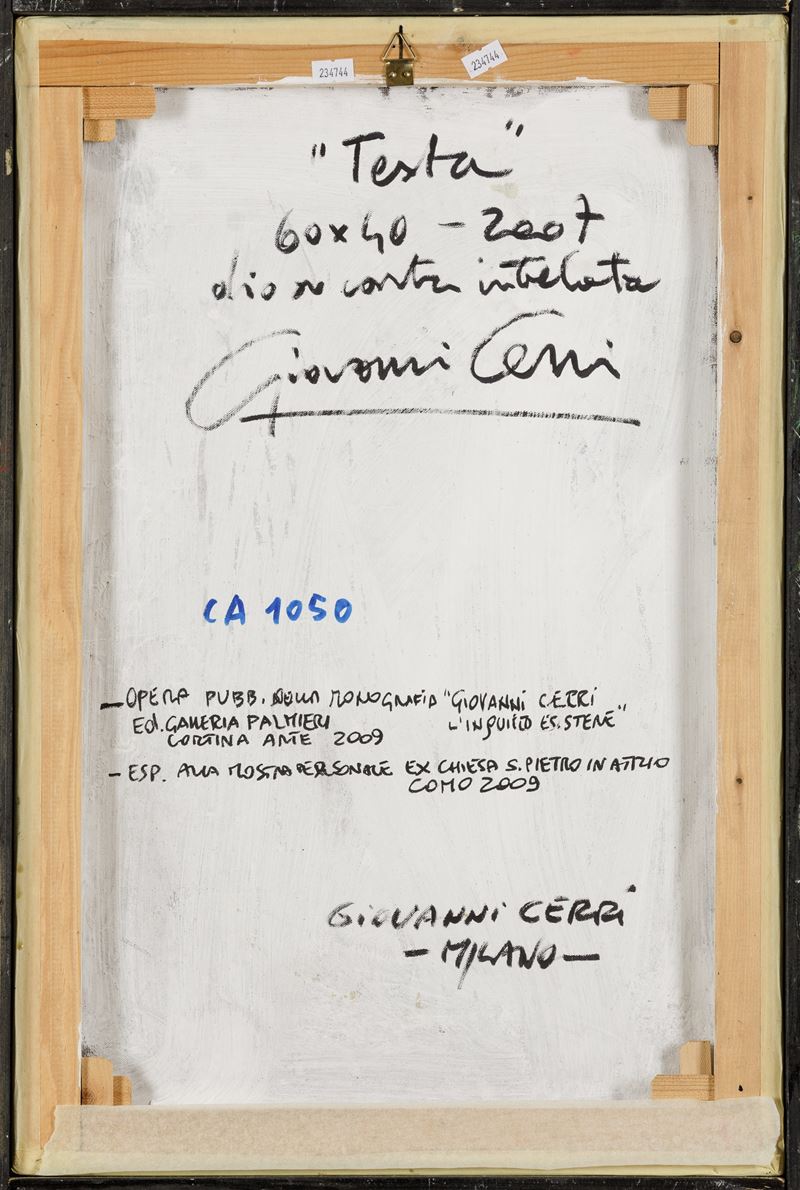 234744
234744
"Testa"
60x40 - 2007
olio su carta intelata
Giovanni Cerri
CA 1050
- OPERA PUBB. NELLA MONOGRAFIA "GIOVANNI CERRI
Ed. GALLERIA PALMIERI L'INQUIETO ESISTERE"
CORTINA ARTE 2009
- ESP. ALLA MOSTRA PERSONALE EX CHIESA S. PIETRO IN ATRIO
COMO 2009
GIOVANNI CERRI
- MILANO -